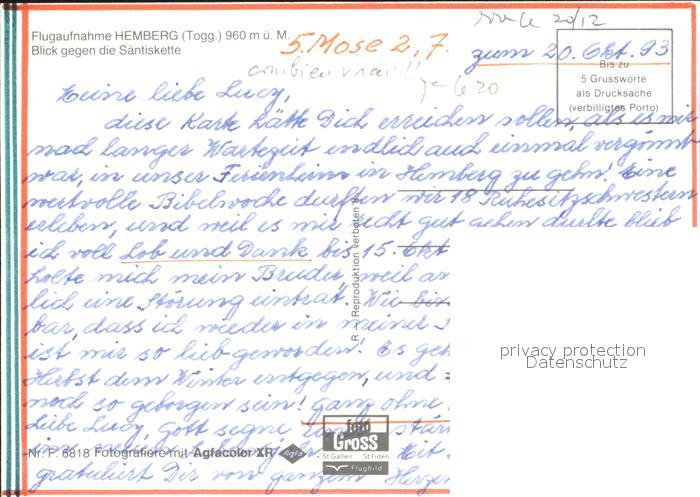 Flugaufnahme HEMBERG (Togg.) 960 m ü. M.
Blick gegen die Säntiskette
5. Mose 2, 7.
20/12
zum 20. Okt. 93
combien vrai!!
Bis zu
5 Grussworte
als Drucksache
(verbilligtes Porto)
Meine liebe Lucy,
diese Karte hätte Dich erreichen sollen, als es mir
nach langer Wartezeit endlich auch einmal vergönnt
war, in unser Ferienheim in Hemberg zu gehn! Eine
wertvolle Bibelwoche durften wir 18 Ruhesitzschwestern
erleben, und weil es mir recht gut gehen durfte blieb
ich voll Lob und Dank bis 15. Okt
holte mich mein Bruder, weil
lich eine Störung eintrat. Wie
bar, dass ich wieder in meiner
ist mir so lieb geworden! Es geht
Herbst dem Winter entgegen, und
noch so geborgen sein! ganz ohne
Liebe Lucy, Gott segne
in
gratuliert Dir von ganzem Herzen
R - Reproduktion verboten
privacy protection
Datenschutz
foto
GROSS
St Gallen St Fiden
Flugbild
Nr. F. 6818 Fotografiere mit Agfacolor XR Agfa